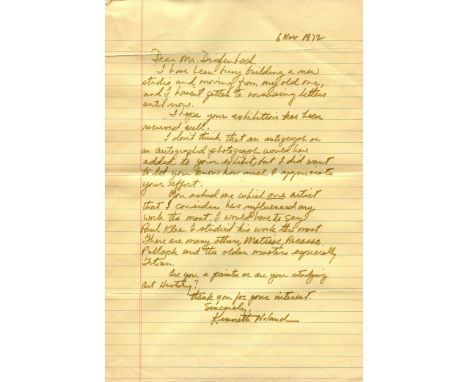 6 Nov 1972
Dear Mr. Diefenbach
I have been busy building a new
studio and moving from my old one,
and I haven't gotten to answering letters
until now.
I hope your exhibition has been
received well.
I don't think that an autograph or
an autographed photograph would have
added to your exhibit, but I did want
to let you know how much I appreciate
your effort.
You asked me which one artist
that I consider has influenced my
work the most. I would have to say
Paul Klee. I studied his work the most.
There are many others, Matisse, Picasso,
Pollack and the older masters especially,
Titian.
Are you a painter or are you studying
art history?
Thank you for your interest.
Sincerely,
Kenneth Noland